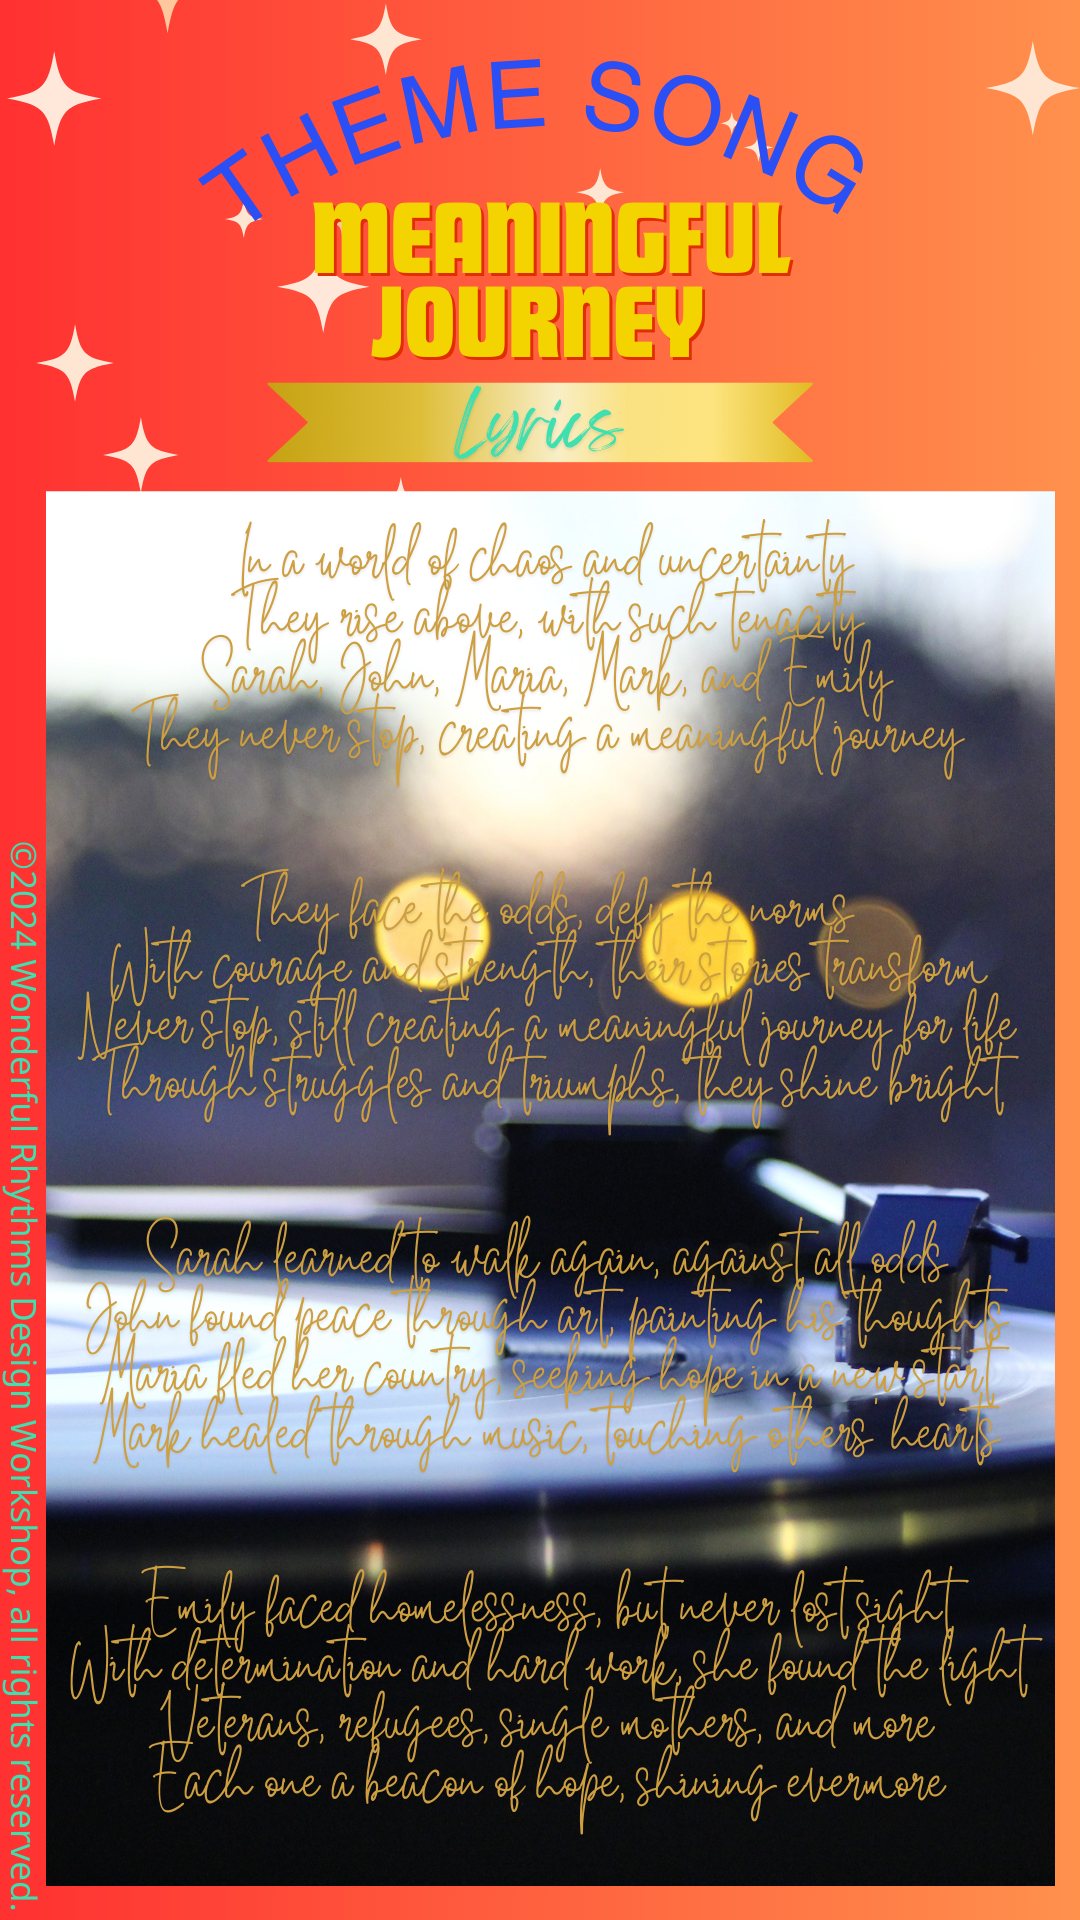 THEME SONG
MEANINGFUL
JOURNEY
Lyrics
In a world of chaos and uncertainty
They rise above, with such tenacity
Sarah, John, Maria, Mark, and Emily
They never stop, creating a meaningful journey
They face the odds, defy the norms
With courage and strength, their stories transform
Never stop, still creating a meaningful journey for life
Through struggles and triumphs, they shine bright
Sarah learned to walk again, against all odds
John found peace through art, painting his thoughts
Maria fled her country, seeking hope in a new start
Mark healed through music, touching others' hearts
Emily faced homelessness, but never lost sight
With determination and hard work, she found the light
Veterans, refugees, single mothers, and more
Each one a beacon of hope, shining evermore
©2024 Wonderful Rhythms Design Workshop, all rights reserved.